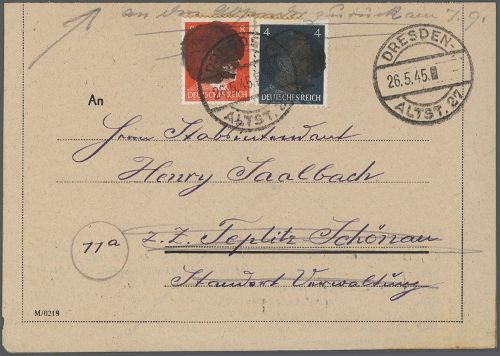 an den Absender zurück am 7.9.
8
DEUTSCHES REICH
4
DEUTSCHES REICH
DRESDEN-
26.5.45
ALTST.
DRESDEN-
26.5.45
ALTST. 27
An
Herrn Stabsintendant
Henry Saalbach
11a
z. Z. Teplitz Schönau
Standort Verwaltung
M/0218